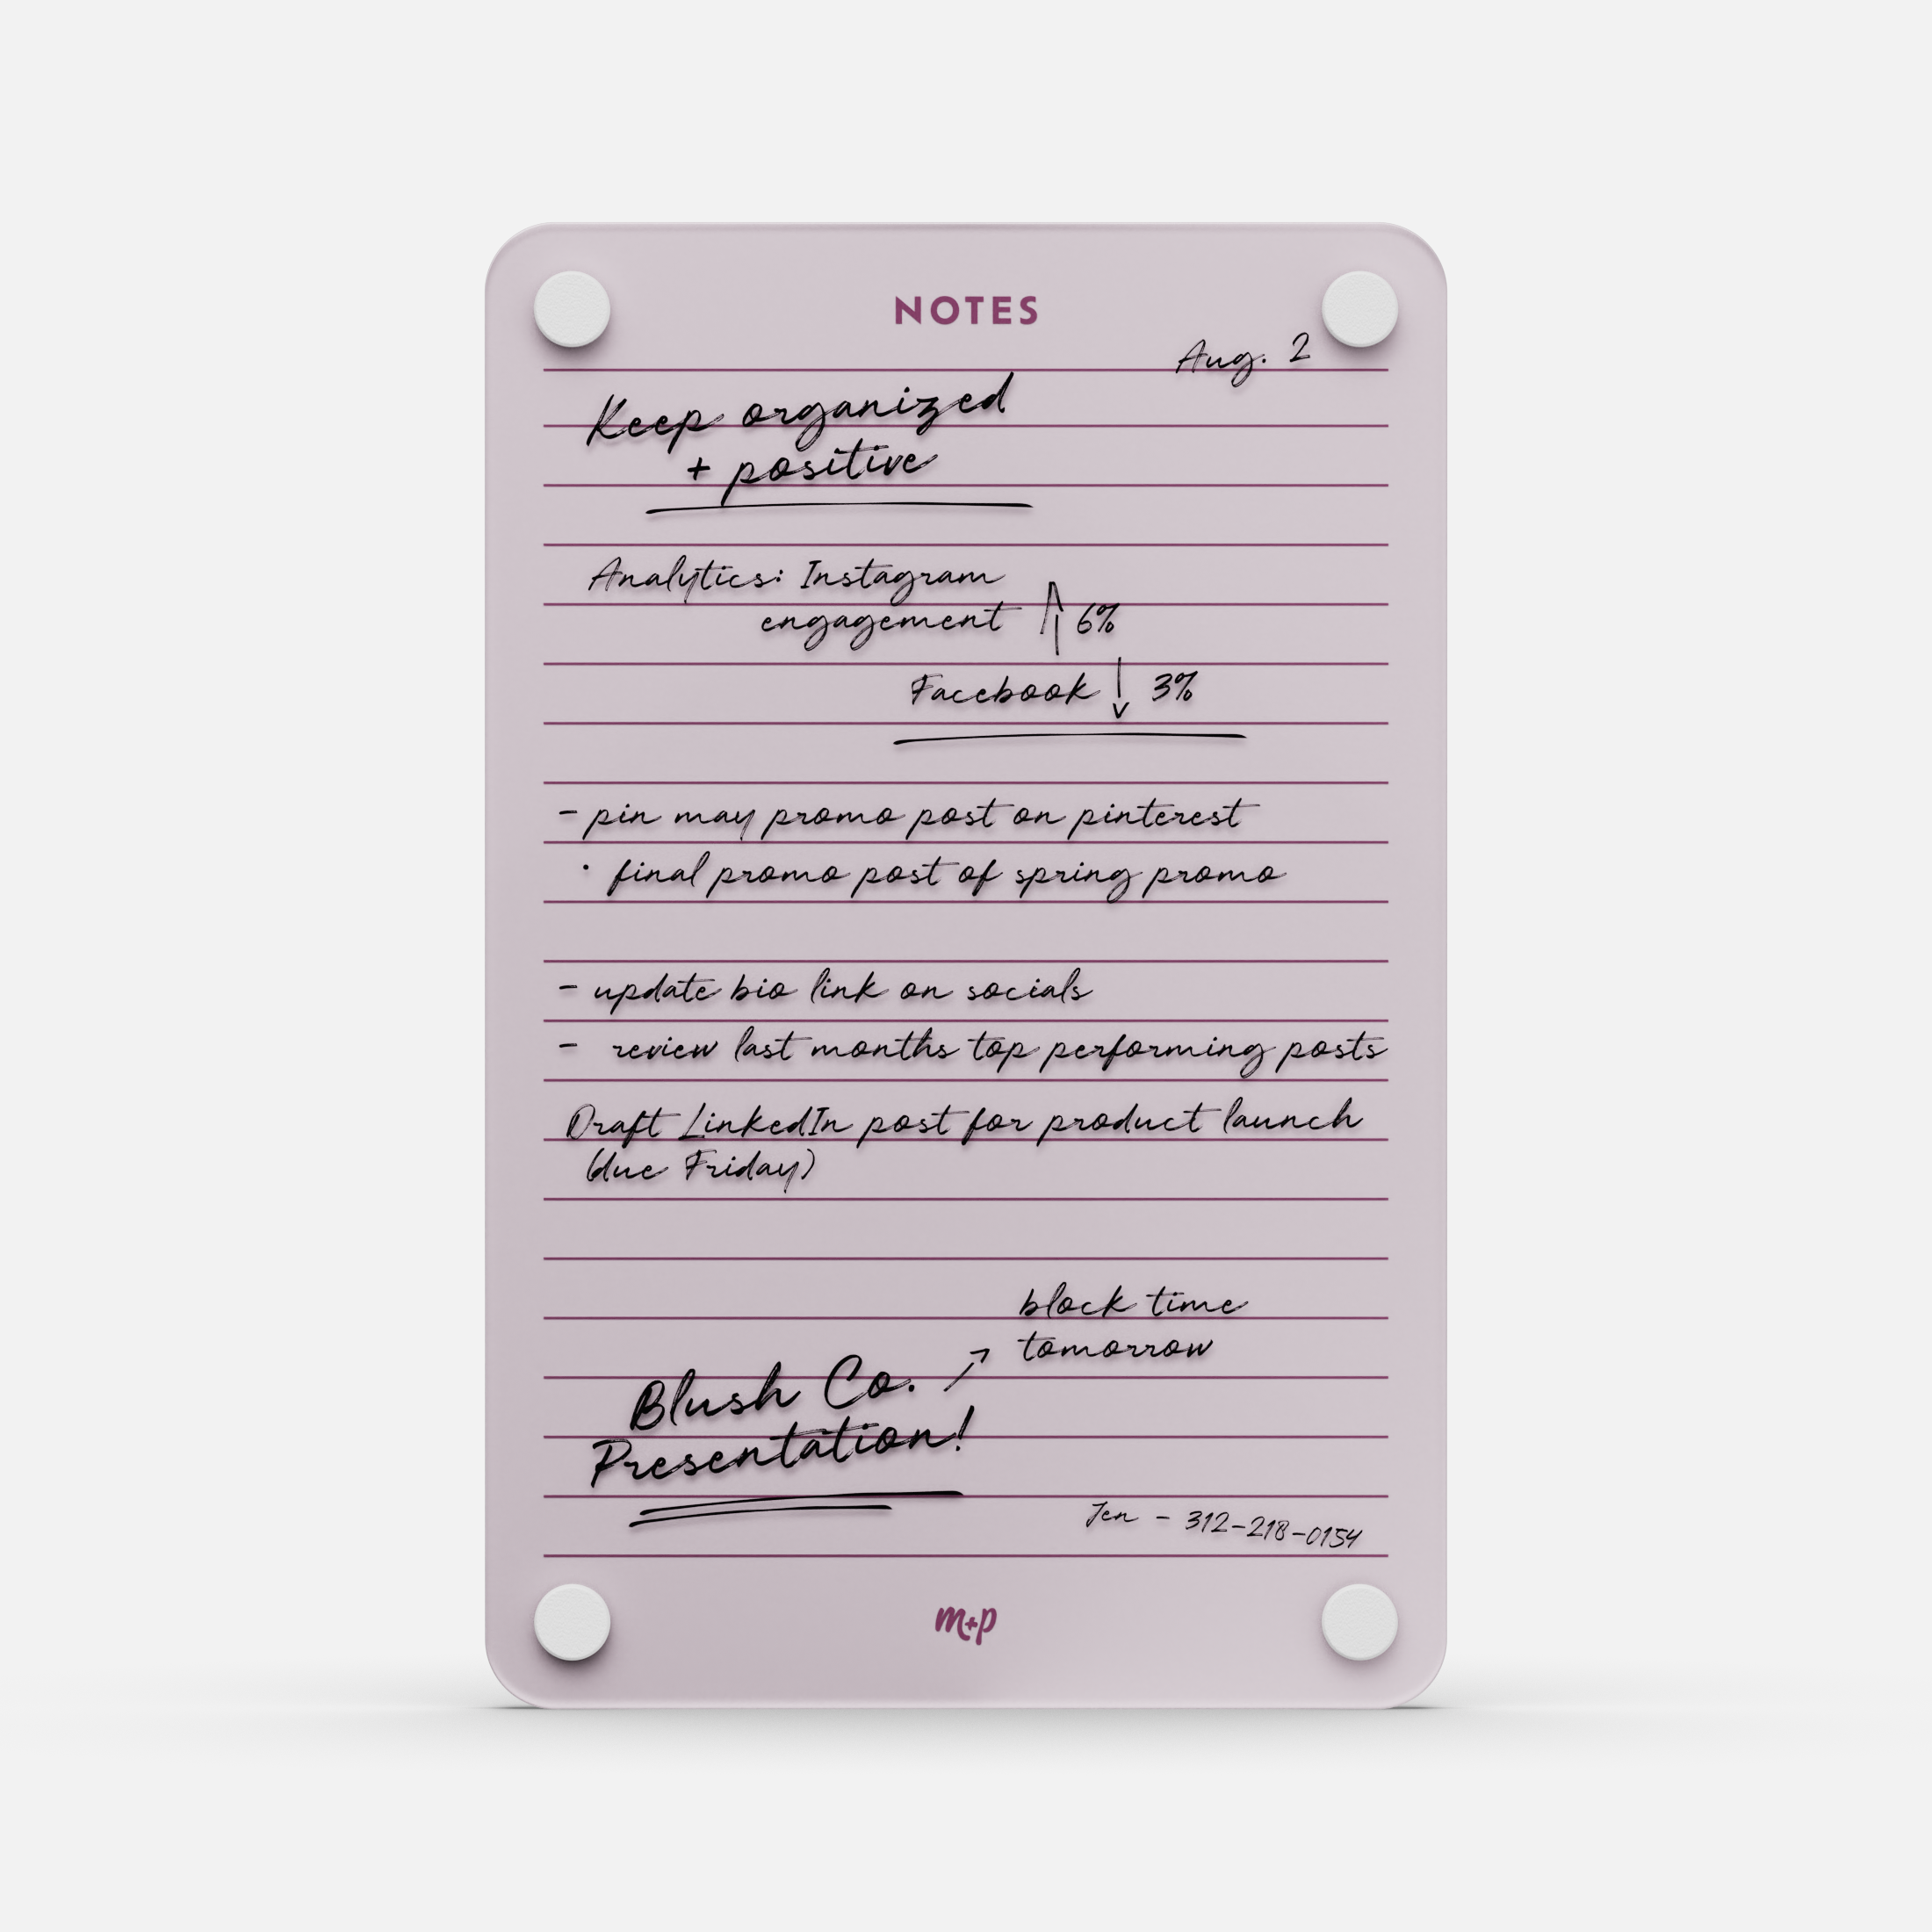 NOTES
Aug. 2
Keep organized
+ positive
Analytics: Instagram
engagement ↑ 6%
Facebook ↓ 3%
- pin may promo post on pinterest
· final promo post of spring promo
- update bio link on socials
- review last months top performing posts
Draft LinkedIn post for product launch
(due Friday)
block time
tomorrow
Blush Co. ↗
Presentation!
Jen - 312-218-0154
m+p